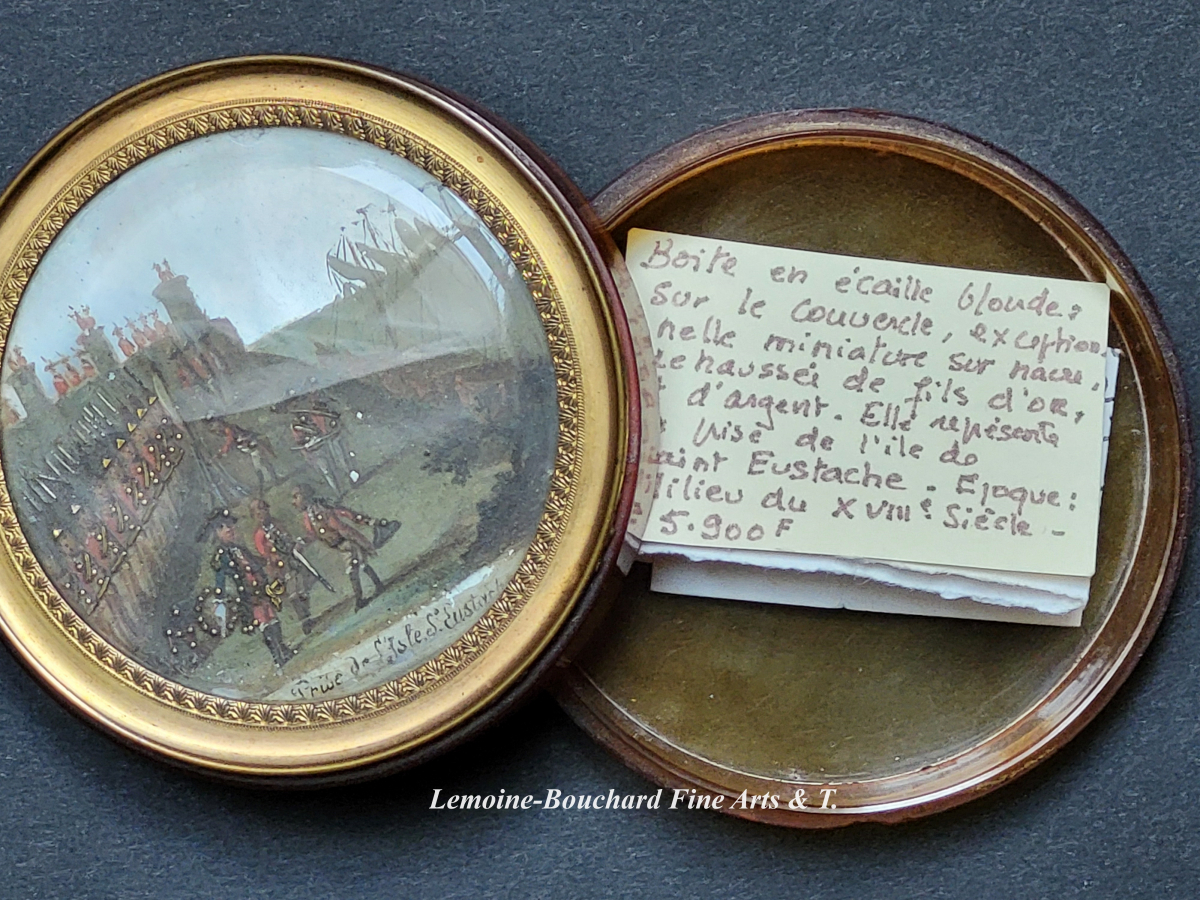 Prise de L'Isle St Eustach
Boite en écaille blonde,
sur le couvercle, exception
nelle miniature sur nacre,
rehaussée de fils d'or,
d'argent. Elle représente
prise de l'île de
aint Eustache. Epoque:
Milieu du XVIIIe Siècle -
5.900 F
Lemoine-Bouchard Fine Arts & T.